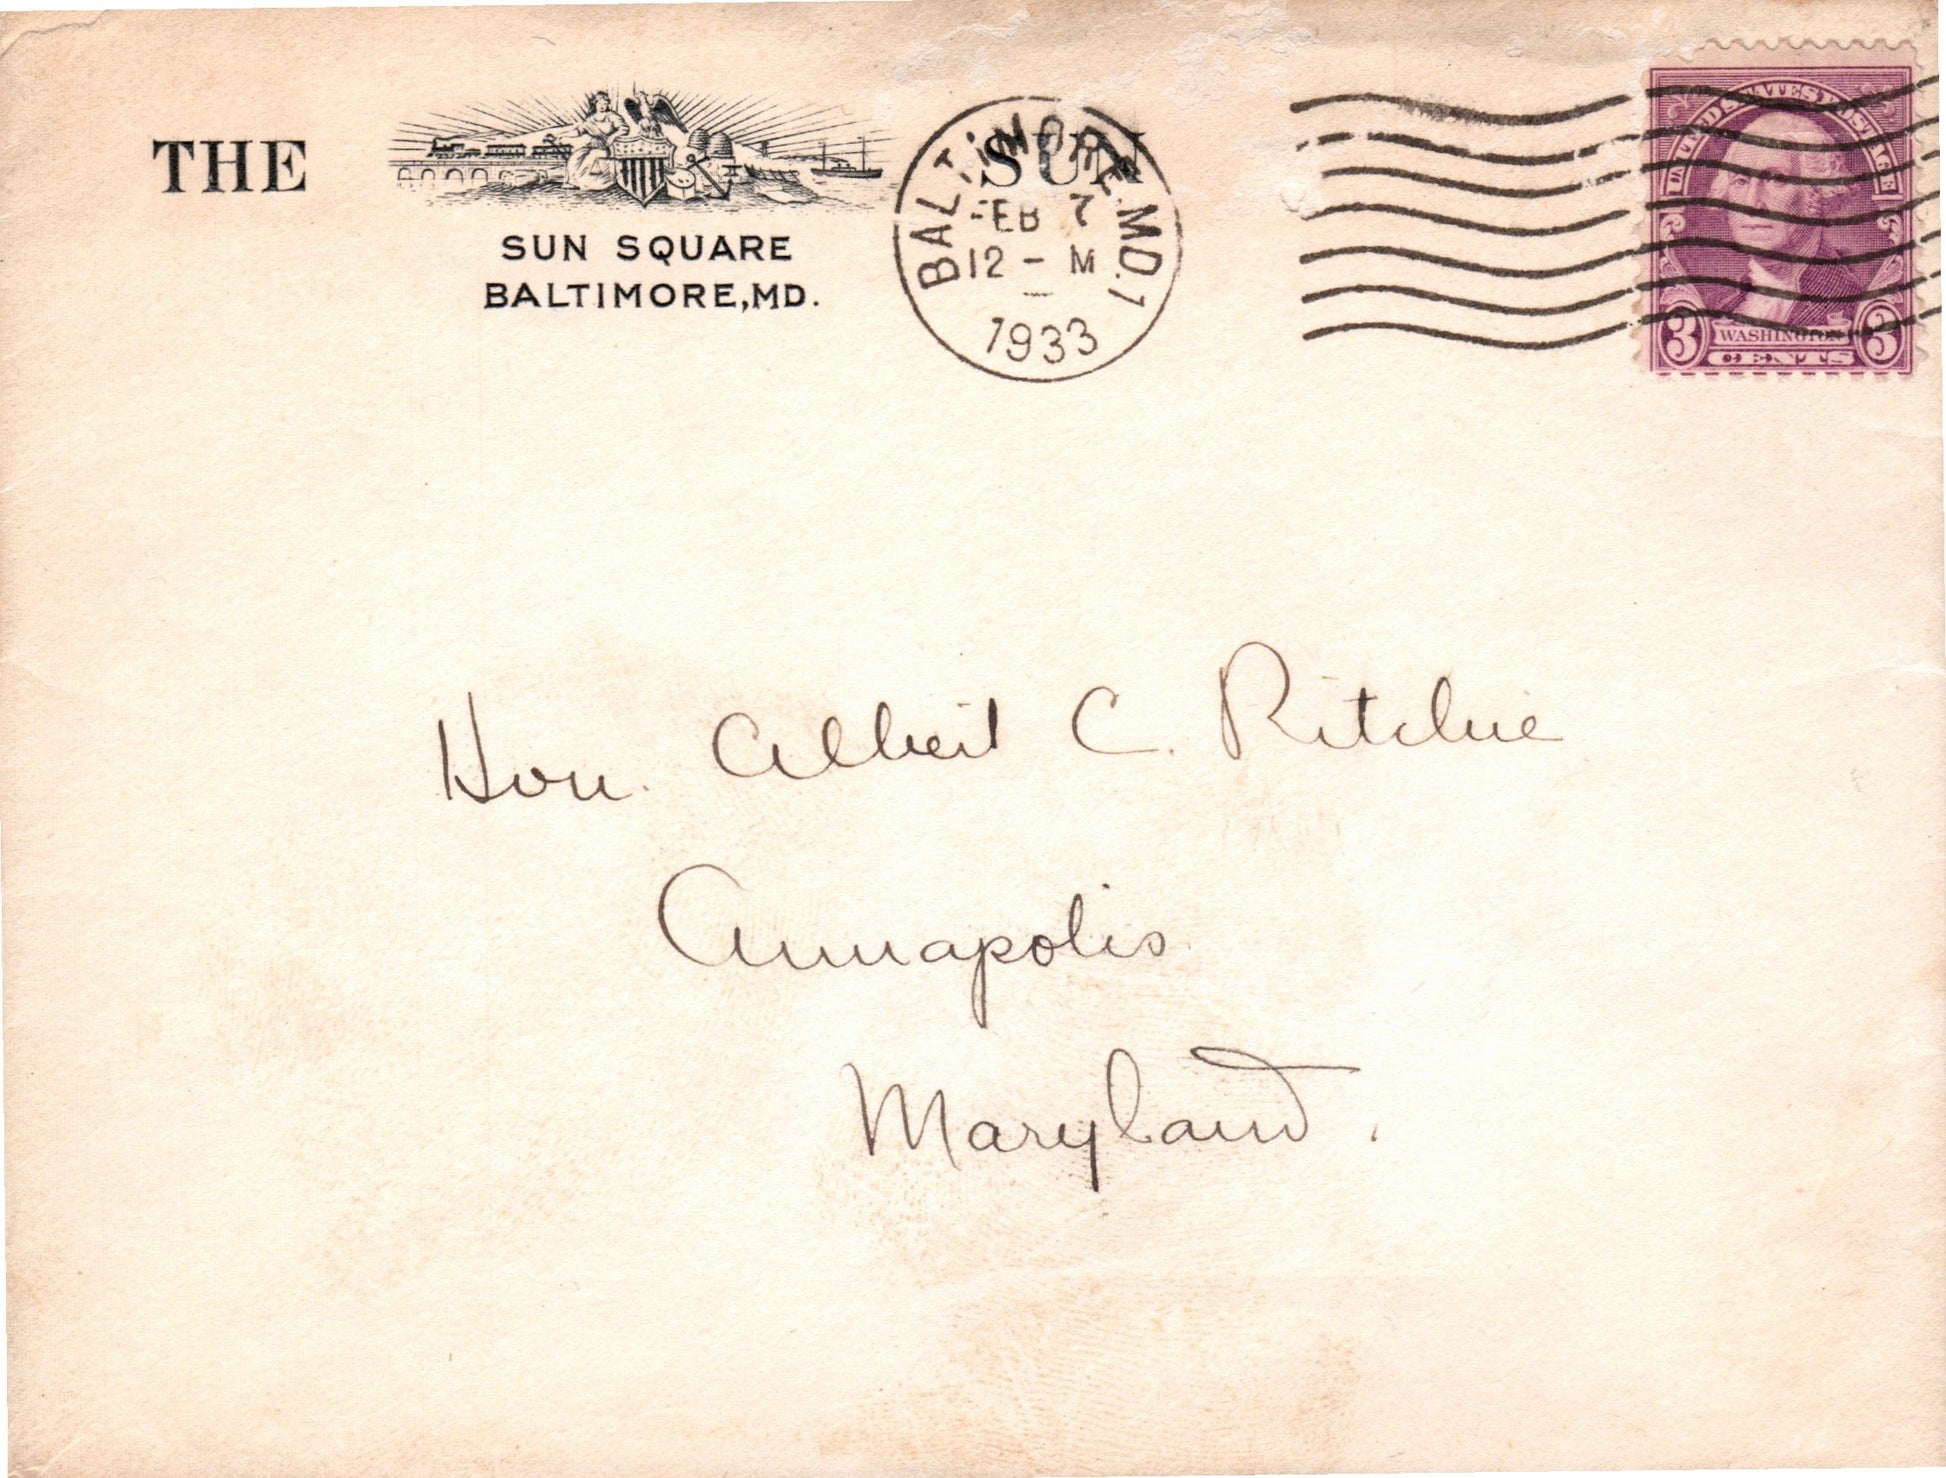 THE SUN
SUN SQUARE
BALTIMORE,MD.
BALTIMORE, MD. 1
FEB 7
12 - M
1933
UNITED STATES POSTAGE
WASHINGTON
3 CENTS 3
Hon. Albert C. Ritchie
Annapolis
Maryland.